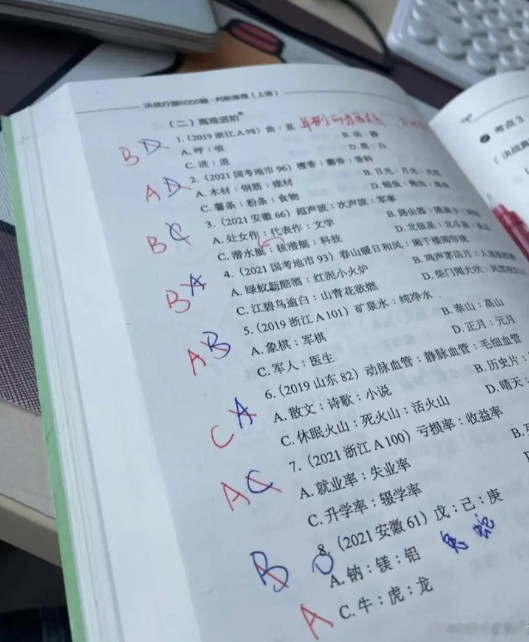 决战行测5000题·判断推理（上册）
（二）高难进阶
1.（2019 浙江 A 98）曲：直
B D
A. 呼：吸
B. 动：静
C. 进：退
D. 黑：白
2.（2021 国考地市 96）檀香：麝香：香料
A D
A. 木材：钢筋：建材
C. 薯条：粉条：食物
3.（2021 安徽 66）超声波：次声波：军事
B C
A. 处女作：代表作：文学
C. 潜水艇：核潜艇：科技
4.（2021 国考地市 93）春山暖日和风：阑干楼阁帘栊
B A
A. 绿蚁新醅酒：红泥小火炉
B. 鸡声茅店月：
C. 江碧鸟逾白：山青花欲燃
D. 柴门闻犬吠：
5.（2019 浙江 A 101）矿泉水：纯净水
A B
A. 象棋：军棋
B. 泰山：高山
C. 军人：医生
D. 正月：元月
6.（2019 山东 82）动脉血管：静脉血管：毛细血管
C A
A. 散文：诗歌：小说
B. 历史片：
C. 休眠火山：死火山：活火山
D. 晴天：
7.（2021 浙江 A 100）亏损率：收益率
A C
A. 就业率：失业率
B.
C. 升学率：辍学率
8.（2021 安徽 61）戊：己：庚
B
A. 钠：镁：铝
兔 蛇
A
C. 牛：虎：龙
考点